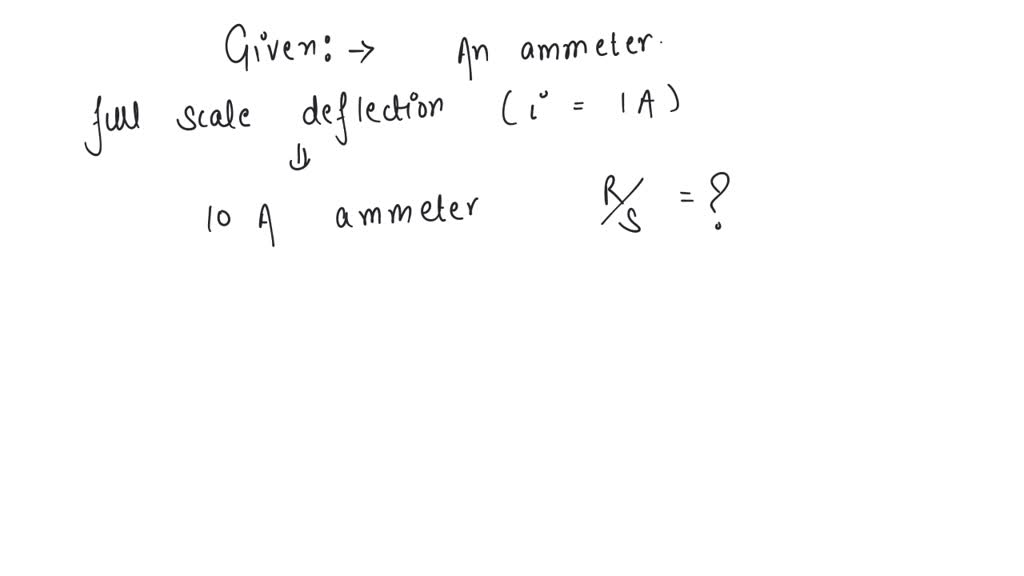 Given: → An ammeter.
full scale deflection (i = 1A)
⇓
10 A ammeter R/S = ?